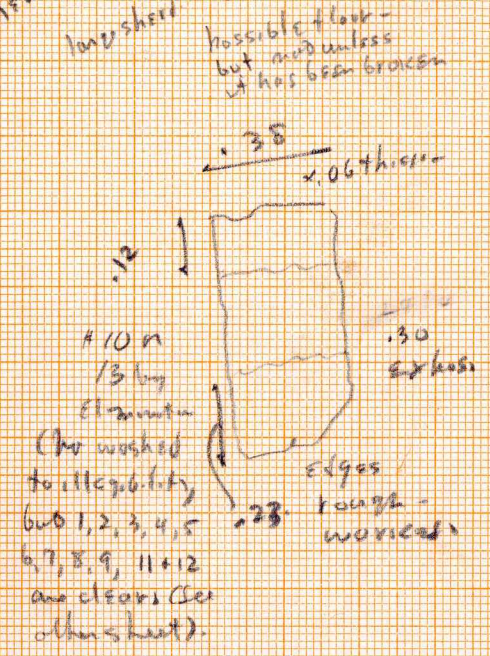 large sherd
possible floor -
but not unless
it has been broken
.38
x .06 thick -
.12
.30
# 10 or
13 by
Elimination
(No washed
to illegibility,
but 1, 2, 3, 4, 5
6, 7, 8, 9, 11 + 12
are clear. (See
other sheet).
.23.
Edges
rough -
worked.